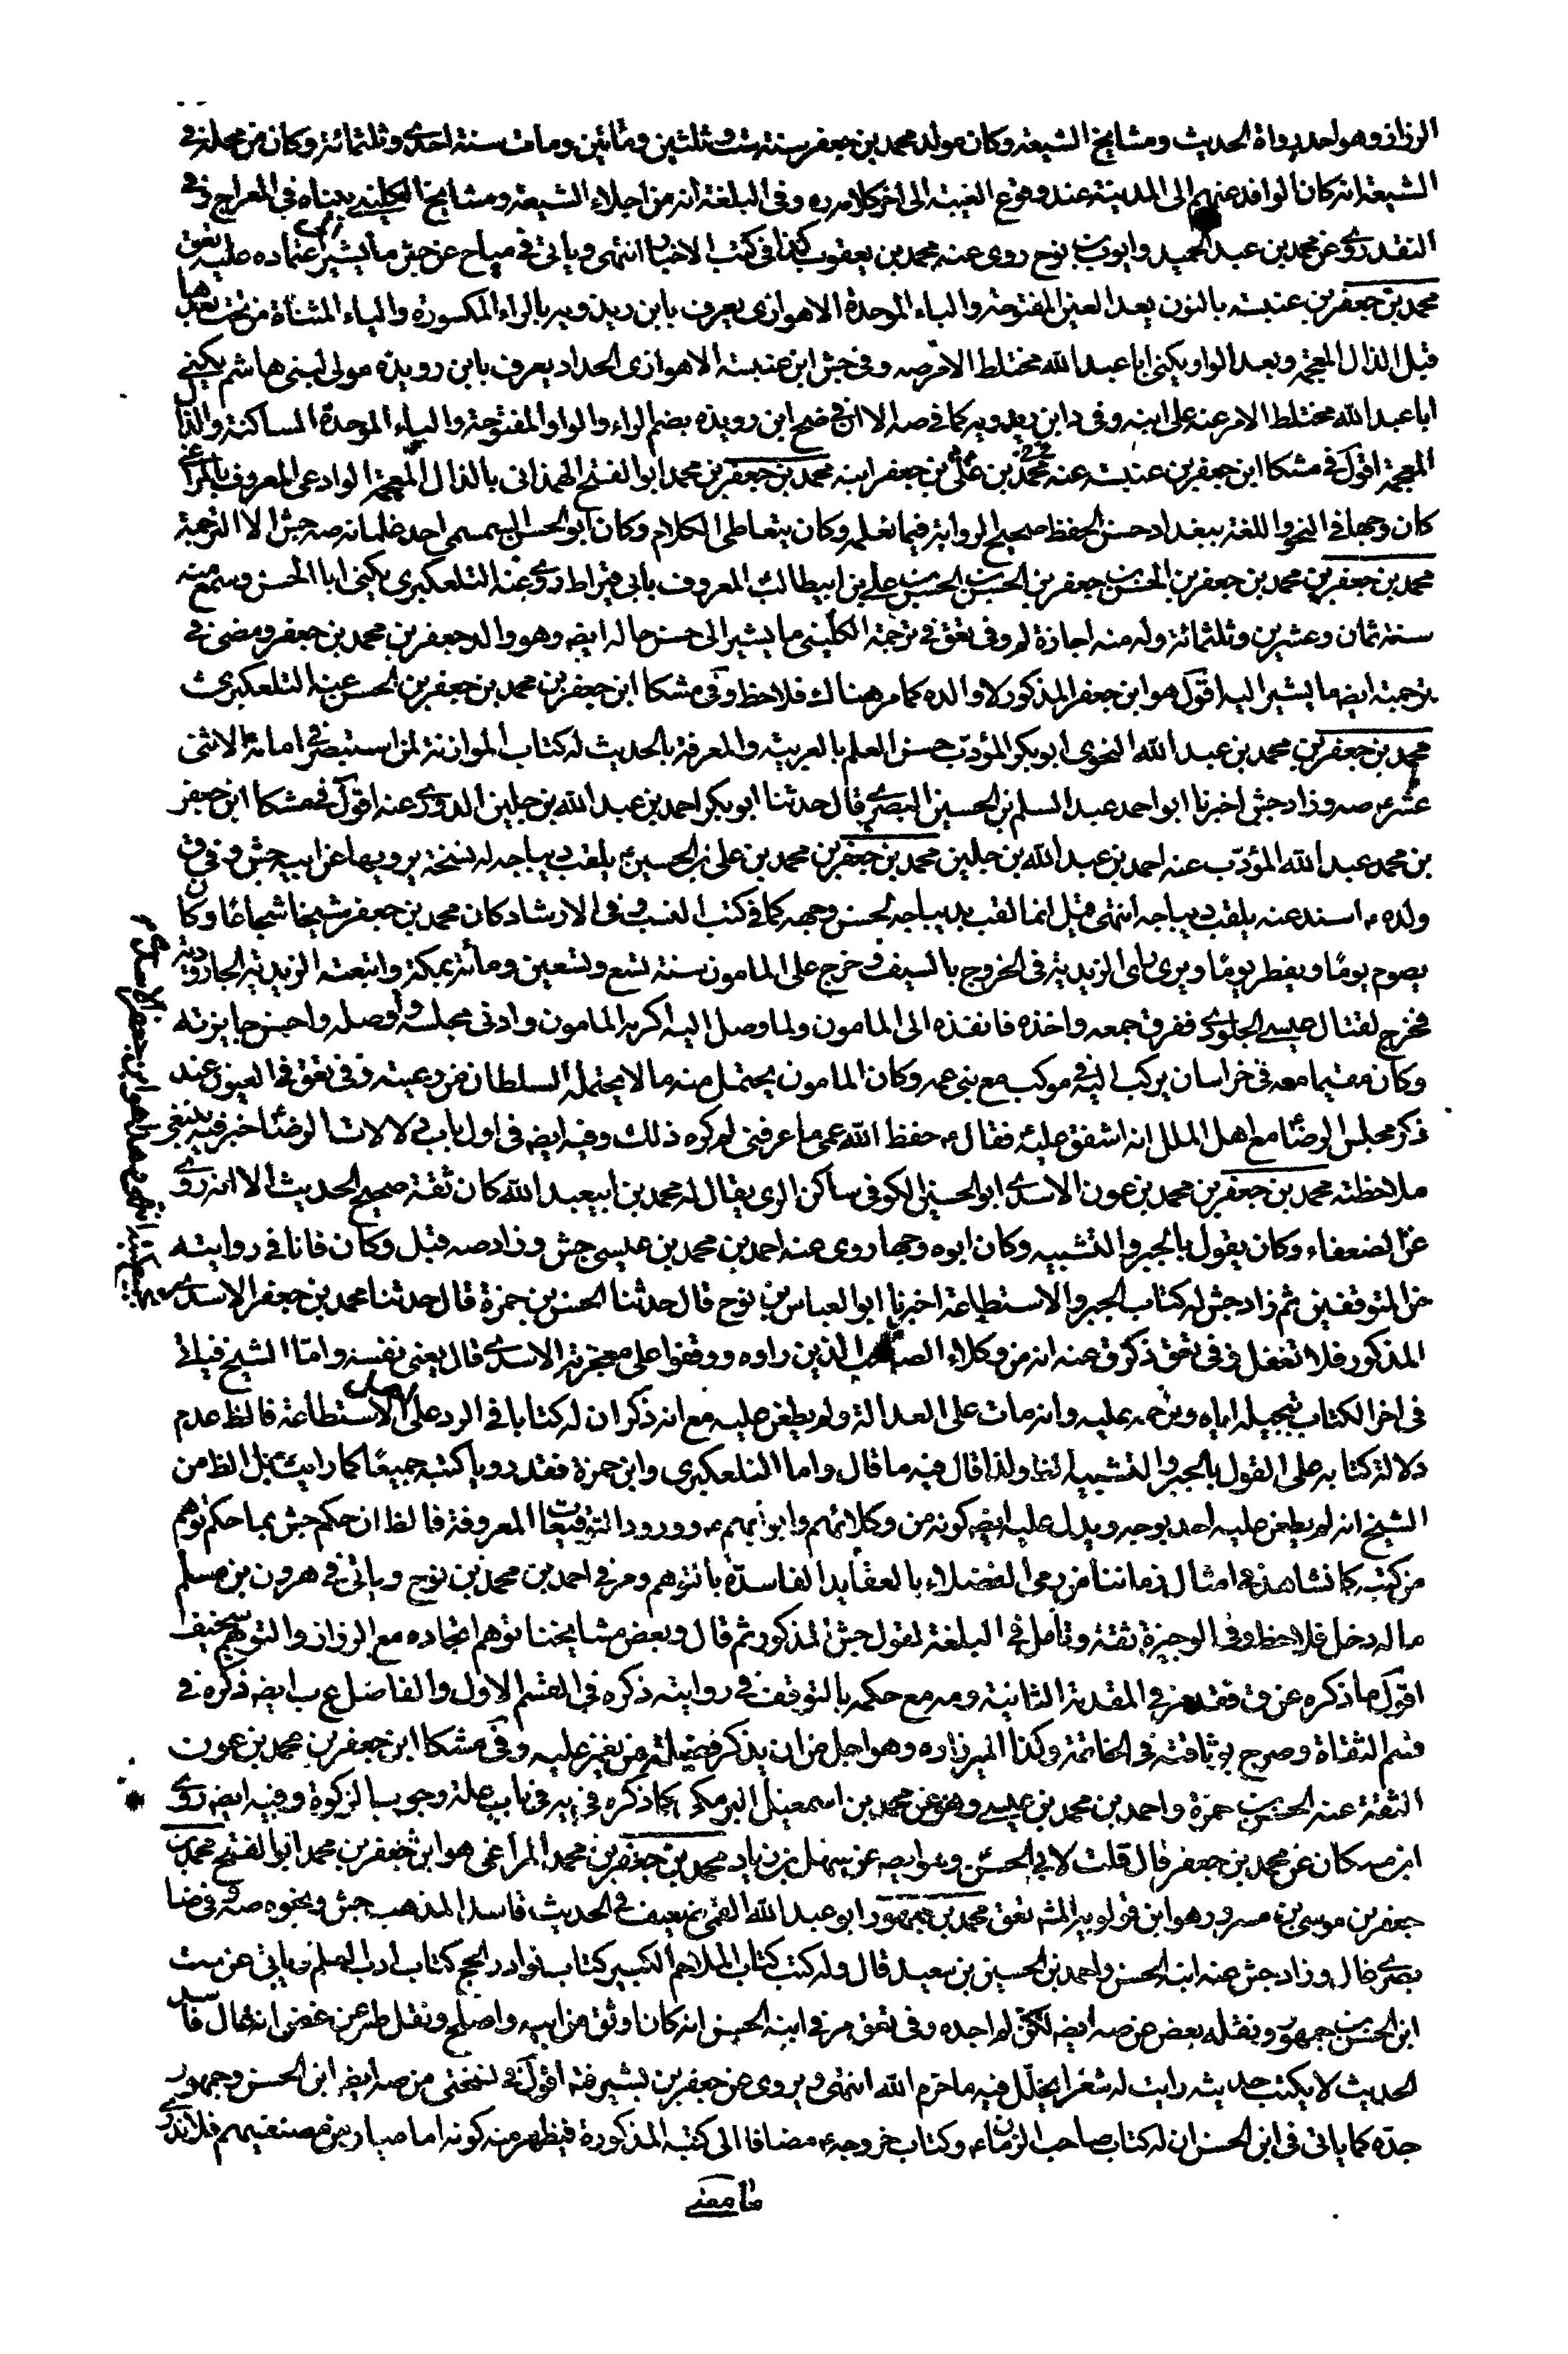 الرزاز وهو احد رواة الحديث ومشايخ الشيعة وكان مولد محمد بن جعفر سنة ست وثلثين ومأتين ومات سنة احدى وثلثمائة وكان من محله في
الشيعة انه كان الوافد عنهم الى المدينة عند وقوع الغيبة الى اخر كلامه ره وفي البلغة انه من اجلاء الشيعة ومشايخ الكليني بيناه في المعراج وفي
النقد روى عن محمد بن عبد الحميد وايوب بن نوح روى عنه محمد بن يعقوب كذا في كتب الاخبار انتهى وياتي في مياح عن جش ما يشير اعتماده عليه تعق
محمد بن جعفر بن عنبسة بالنون بعد العين المفتوحة والباء الموحدة الاهوازي يعرف بابن ريذويه بالراء المكسورة والياء المثناة من تحت بعدها
قبل الذال المعجمة وبعد الواو يكنى ابا عبد الله مختلط الامر صه وفي جش ابن عنبسة الاهوازي الحداد يعرف بابن رويذه مولى لبني هاشم يكنى
ابا عبد الله مختلط الامر عنه علي ابنه وفي د ابن ريدويه كما في صه الا ان في ضح ابن رويذه بضم الراء والواو المفتوحة والياء الموحدة الساكنة والذال
المعجمة اقول في مشكا ابن جعفر بن عنبسة عنه محمد بن علي بن جعفر ابنه محمد بن جعفر بن محمد ابو الفتح الهمذاني بالذال المعجمة الوادعي المعروف بالمراغي
كان وجها في النحو واللغة ببغداد حسن الحفظ صحيح الرواية فيما نعلمه وكان يتعاطى الكلام وكان ابو الحسن السمسمي احد غلمانه صه جش الا الترجمة
محمد بن جعفر بن محمد بن جعفر بن الحسن بن جعفر بن الحسن بن الحسن بن علي بن ابيطالب المعروف بابي قيراط روى عنه التلعكبري يكنى ابا الحسن وسمع منه
سنة ثمان وعشرين وثلثمائة وله منه اجازة لم وفي تعق في ترجمة الكليني ما يشير الى حسن حاله ايضه وهو والد جعفر بن محمد بن جعفر ومضى في
ترجمته ايضه ما يشير اليه اقول هو ابن جعفر المذكور لا والده كما مر هناك فلاحظ وفي مشكا ابن جعفر بن محمد بن جعفر بن الحسن عنه التلعكبري
محمد بن جعفر بن محمد بن عبد الله النحوي ابو بكر المؤدّب حسن العلم بالعربية والمعرفة بالحديث له كتاب الموازنة لمن استبصر في امامة الاثني
عشر ع صه وزاد جش اخبرنا ابو احمد عبد السلم بن الحسين البصري قال حدثنا ابو بكر احمد بن عبد الله بن جلين الدوري عنه اقول في مشكا ابن جعفر
بن محمد عبد الله المؤدّب عنه احمد بن عبد الله بن جلين محمد بن جعفر بن محمد بن علي بن الحسين ع يلقب ديباجه له نسخة يرويها عن ابيه جش وفي ق
ولده ع اسند عنه يلقب ديباجه انتهى قيل انما لقب بديباجه لحسن وجهه كما في كتب النسب وفي الارشاد كان محمد بن جعفر شيخا شجاعا وكان
يصوم يوما ويفطر يوما ويرى راى الزيدية في الخروج بالسيف خرج على المامون سنة تسع وتسعين ومائة بمكة واتبعته الزيدية الجارودية
فخرج لقتال عيسى الجلودي ففرق جمعه واخذه فانفذه الى المامون ولما وصل اليه اكرمه المامون وادنى مجلسه واوصله واحسن جايزته
وكان مقيما معه في خراسان يركب اليه في موكب مع بني عمه وكان المامون يحتمل منه ما لا يحتمله السلطان من رعيته وفي تعق في العيون عند
ذكر مجلس الرضا مع اهل الملل انه اشفق عليه فقال ع حفظ الله عمي ما عرفني لم كره ذلك وفيه ايضه في اول باب دلالات الرضا خبر فيه ينبغي
ملاحظته محمد بن جعفر بن محمد بن عون الاسدي ابو الحسين الكوفي ساكن الري يقال له محمد بن ابيعبد الله كان ثقة صحيح الحديث الا انه روى
عن الضعفاء وكان يقول بالجبر والتشبيه وكان ابوه وجها روى عنه احمد بن محمد بن عيسى جش وزاد صه قبل وكان فانا في روايته
من المتوقفين ثم زاد جش له كتاب الجبر والاستطاعة اخبرنا ابو العباس بن نوح قال حدثنا الحسن بن حمزة قال حدثنا محمد بن جعفر الاسدي
المذكور فلا تغفل وفي تعق ذكر ق عنه انه من وكلاء الصاحب الذين راوه ووقفوا على معجزته الاسدي قال يعني نفسه واما الشيخ فياتي
في اخر الكتاب تبجيله اياه وترحمه عليه وانه مات على العدالة ولم يطعن عليه مع انه ذكر ان له كتابا في الرد على اهل الاستطاعة فالظ عدم
دلالة كتابه على القول بالجبر والتشبيه ولذا قال فيه ما قال واما التلعكبري وابن حمزة فقد رويا كتبه جميعا كما رايت بل الظ من
الشيخ انه لم يطعن عليه احد بوجه ويدل عليه ايضه كونه من وكلائهم وابوابهم ع وورود التوقيعات المعروفة فالظ ان حكم جش بما حكم توهم
من كتبه كما نشاهد في امثال زماننا من رمى الفضلاء بالعقايد الفاسدة بالتوهم ومر في احمد بن محمد بن نوح وياتي في هرون بن مسلم
ما له دخل فلاحظ وفي الوجيزة ثقة وتامل في البلغة لقول جش المذكور ثم قال وبعض مشايخنا توهم اتحاده مع الرزاز والتوهم سخيف
اقول ما ذكره عن ق فقد مر في المقدمة الثانية ومه مع حكمه بالتوقف في روايته ذكره في القسم الاول والفاضل ع ب ايضه ذكره في
قسم الثقاة وصرح بوثاقته في الخاتمة وكذا الميرزا ره وهو اجل من ان يذكر فضيلة من يغمز عليه وفي مشكا ابن جعفر بن محمد بن عون
الثقة عنه الحسن بن حمزة واحمد بن محمد بن عيسى وهو عن محمد بن اسمعيل البرمكي كما ذكره في يه في باب علة وجوب الزكوة وفيه ايضه روى
ابن مسكان عن محمد بن جعفر قال قلت لابي الحسن وهو ايضه عن سهل بن زياد محمد بن جعفر بن محمد المراغي هو ابن جعفر بن محمد ابو الفتح محمد بن
جعفر بن موسى بن مسرور هو ابن قولويه المشه تعق محمد بن جمهور ابو عبد الله القمي ضعيف في الحديث فاسد المذهب جش ونحوه صه وفي ضا
بصري غال وزاد جش عنه ابنه الحسن واحمد بن الحسين بن سعيد قال وله كتب كتاب الملاحم الكبير كتاب نوادر الحج كتاب ادب العلم وياتي عن ست
ابن الحسن بن جمهور ونقله بعض عن صه ايضه لكن لم اجده وفي تعق مر في ابنه الحسن انه كان اوثق من ابيه واصلح ونقل طس عن غض انه غال فاسد
الحديث لا يكتب حديثه رايت له شعرا يحلل فيه ما حرم الله انتهى ويروي عن جعفر بن بشير فه اقول في نسختي من صه ايضه ابن الحسن وجمهور
جدّه كما ياتي في ابن الحسن ان له كتاب صاحب الزمان ع وكتاب خروجه ع مضافا الى كتبه المذكورة فيظهر منه كونه اماميا من مصنفيهم فلا ندري
ما معنى